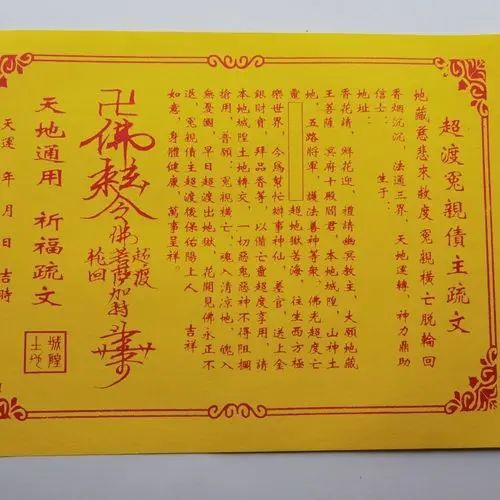 超渡冤親債主疏文
地藏慈悲來救度 冤親橫亡脫輪回
香烟沉沉，法通三界，天地運轉，神力鼎助
信士： 生于：
地址：
香花請，鮮花迎，禮請幽冥教主，大願地藏
王菩薩，冥府十殿閻君，本地城隍，山神土
地，五路將軍，護法善神等衆、佛光超度亡
靈 超地獄苦海，往生西方極
樂世界，今爲幫忙辦事神仙、善官，送上金
銀財寶，拜品香等，以備亡靈超度享用，請
本地城隍土地轉交，一切惡鬼惡神不得阻攔
搶用，普願：冤視橫亡，魂入清凉地，魄入
無憂園，早日超渡出地獄，花開見佛永正不
退，冤視債主超渡後保佑陽上人 吉祥
如意，身體健康，萬事呈祥。
超渡
卍佛敕令佛菩薩加持
輪回
天地通用 祈福疏文
城隍
土地
天運 年 月 日 吉時